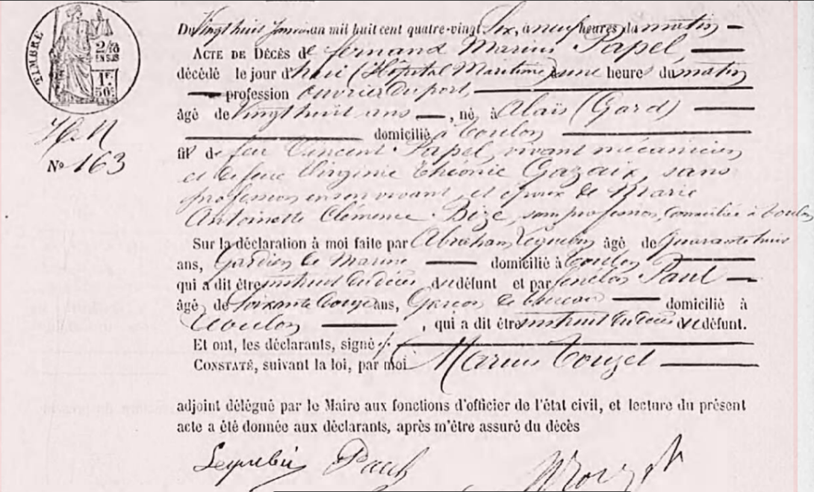 TIMBRE
2/10 EN SUS
1F 50c
Du Vingt huit Janvier an mil huit cent quatre-vingt Six, à neuf heures du matin
ACTE DE DÉCÈS de fernand Marius Papel,
décédé le jour d'hui (Hôpital Maritime) à une heure du matin
profession ouvrier du port
âgé de Vingt huit ans, né à Alais (Gard)
domicilié à Toulon
H. M
N° 163
fils de feu Vincent Papel, vivant mécanicien,
et de feue Virginie Gazaix, sans
profession en son vivant, et époux de Marie
Antoinette Clémence Bize, sans profession, domiciliée à Toulon
Sur la déclaration à moi faite par Abraham âgé de quarante huit
ans, Gardien de Marine domicilié à Toulon
qui a dit être du défunt et par fénelon Paul
âgé de Soixante ans, Garçon de bureau domicilié à
Toulon, qui a dit être du défunt.
Et ont, les déclarants, signé
CONSTATÉ, suivant la loi, par moi Marius Touzet
adjoint délégué par le Maire aux fonctions d'officier de l'état civil, et lecture du présent
acte a été donnée aux déclarants, après m'être assuré du décès
Paul